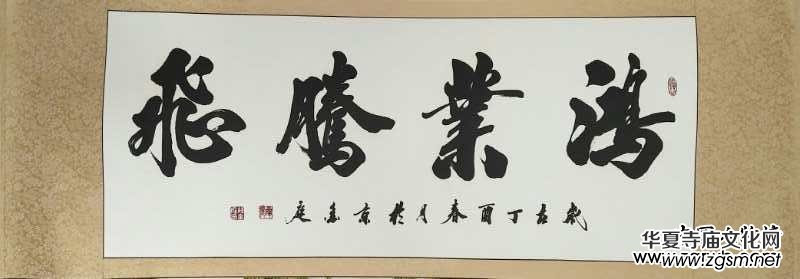 鴻業騰飛
歲在丁酉春月於京庭
华夏寺庙文化网
www.zgsm.net